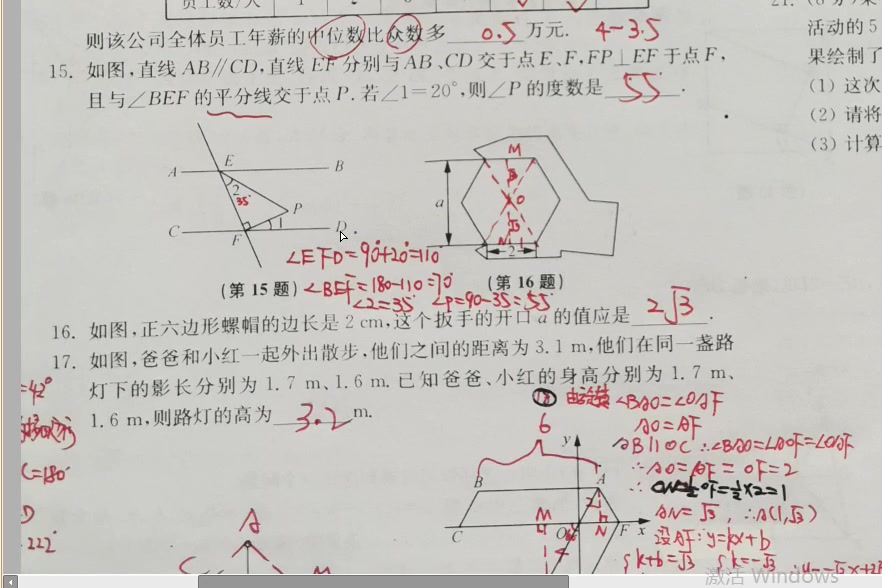 员工数/人 1
则该公司全体员工年薪的中位数比众数多 0.5 万元. 4-3.5
15. 如图,直线 AB∥CD,直线 EF 分别与 AB、CD 交于点 E、F,FP⊥EF 于点 F,
且与∠BEF 的平分线交于点 P. 若∠1=20°,则∠P 的度数是 55°.
A E B
2
35°
P
C F 1 D
∠EFD=90°+20°=110°
∠BEF=180-110=70°
∠2=35° ∠P=90-35=55°
(第 15 题)
M
a
O
N
2
(第 16 题)
16. 如图,正六边形螺帽的边长是 2 cm,这个扳手的开口 a 的值应是 2√3.
17. 如图,爸爸和小红一起外出散步,他们之间的距离为 3.1 m,他们在同一盏路
灯下的影长分别为 1.7 m、1.6 m. 已知爸爸、小红的身高分别为 1.7 m、
1.6 m,则路灯的高为 3.2 m.
=42°
C=180°
D
222°
A
⑱ ∠BAO=∠OAF
AO=AF
AB∥OC ∴∠BAO=∠AOF=∠OAF
∴AO=AF=OF=2
∴ON=½OF=½×2=1
AN=√3, ∴A(1,√3)
设AF:y=kx+b
k+b=√3 k=-√3
6
y
B A
2
M
C O N F x
4
21. (8 分)某
活动的 5
果绘制了
(1) 这次
(2) 请将
(3) 计算
激活 Windows